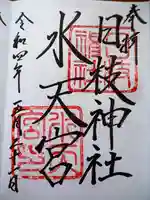 奉拝
日枝神社
水天宮
令和四年五月二十二日